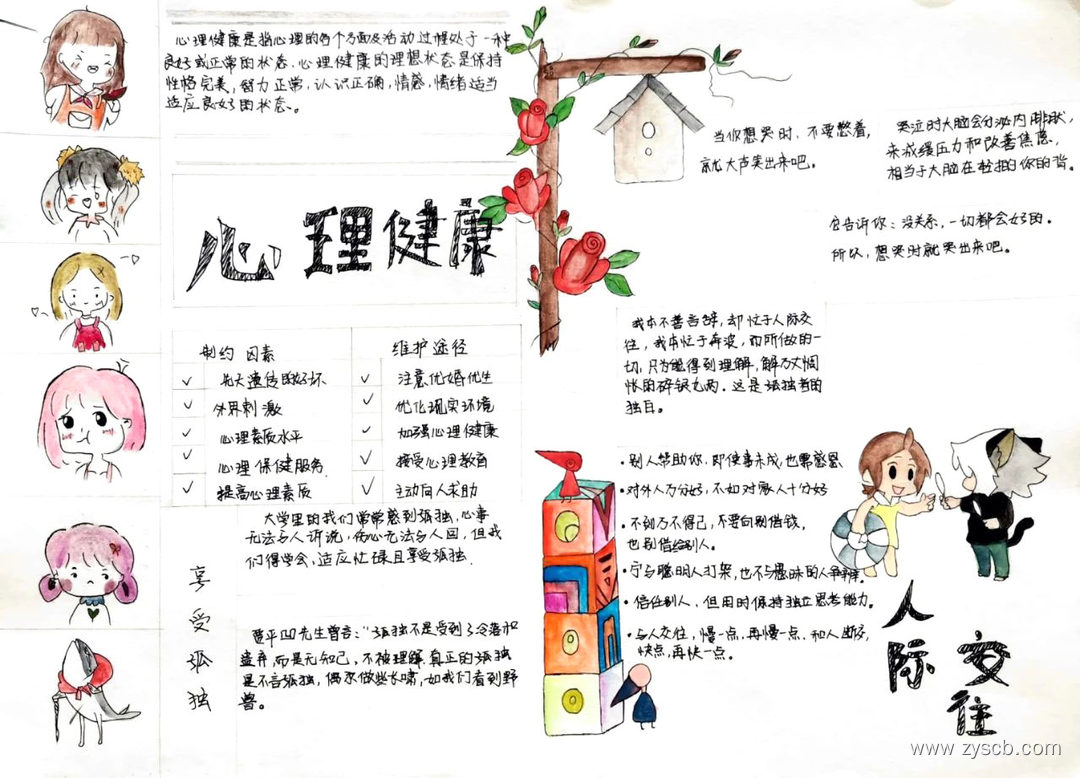 心理健康是指心理的各个方面及活动过程处于一种
良好或正常的状态。心理健康的理想状态是保持
性格完美,智力正常,认识正确,情感,情绪适当
适应良好的状态。
心理健康
制约因素
✓ 先天遗传的好坏
✓ 外界刺激
✓ 心理素质水平
✓ 心理保健服务
✓ 提高心理素质
维护途径
✓ 注意优婚优生
✓ 优化现实环境
✓ 加强心理健康
✓ 接受心理教育
✓ 主动向人求助
享受孤独
大学里的我们常常感到孤独,心事
无法与人诉说,伤心无法与人回,但我
们得学会,适应忙碌且享受孤独.
贾平凹先生曾言:“孤独不是受到了冷落和
遗弃,而是无知己,不被理解.真正的孤独
是不言孤独,偶尔做些长啸,如我们看到野
兽。
当你想哭时,不要憋着,
就大声哭出来吧。
哭泣时大脑会分泌内啡肽,
来减缓压力和改善焦虑,
相当于大脑在轻拍你的背。
它告诉你:没关系,一切都会好的。
所以,想哭时就哭出来吧。
我本不善言辞,却忙于人际交
往,我本忙于奔波,而所做的一
切,只为能得到理解,解万丈惆
怅的碎银几两。这是孤独者的
独白。
·别人帮助你,即使事未成,也需感恩
·对外人万分好,不如对家人十分好
·不到万不得已,不要向别借钱,
也别借给别人。
·宁与聪明人打架,也不与愚昧的人争辩。
·信任别人,但用时保持独立思考能力。
·与人交往,慢一点,再慢一点,和人断交,
快点,再快一点。
人际
交往
www.zyscb.com